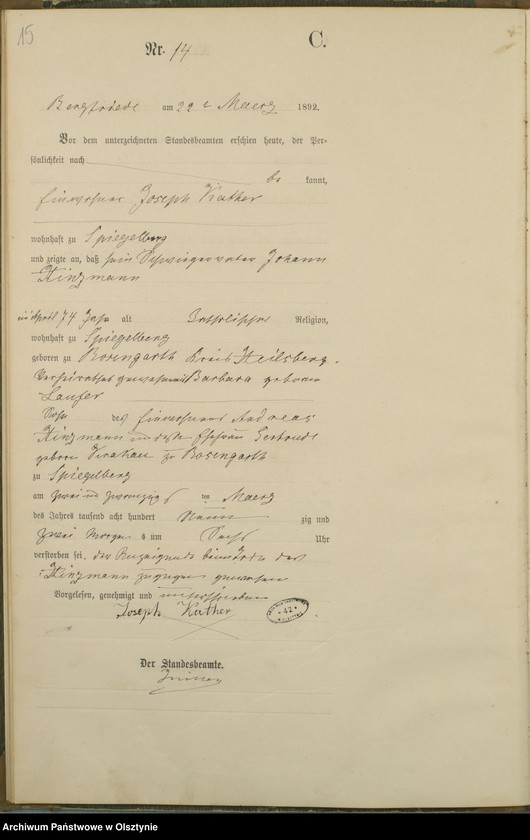 15
C.
Nr. 14
Bergfriede am 22 t Maerz 1892.
Vor dem unterzeichneten Standesbeamten erschien heute, der Per-
sönlichkeit nach
be kannt,
Einwohner Joseph Kather
wohnhaft zu Spiegelberg
und zeigte an, daß sein Schwiegervater Johann
Hinzmann
74 Jahr alt katholischer Religion,
wohnhaft zu Spiegelberg
geboren zu Rosengarth Kreis Heilsberg.
Verheirathet gewesen mit Barbara geborne
Laufer
Sohn des Einwohners Andreas
Hinzmann und deßen Ehefrau Gertrude
geborne zu Rosengarth
zu Spiegelberg
am zwei und zwanzigs ten Maerz
des Jahres tausend acht hundert neun zig und
zwei Morgen s um Sechs Uhr
verstorben sei. der Anzeigende beim Tode des
Hinzmann zugegen gewesen
Vorgelesen, genehmigt und unterschrieben
Joseph Kather
42
Der Standesbeamte.
Archiwum Państwowe w Olsztynie